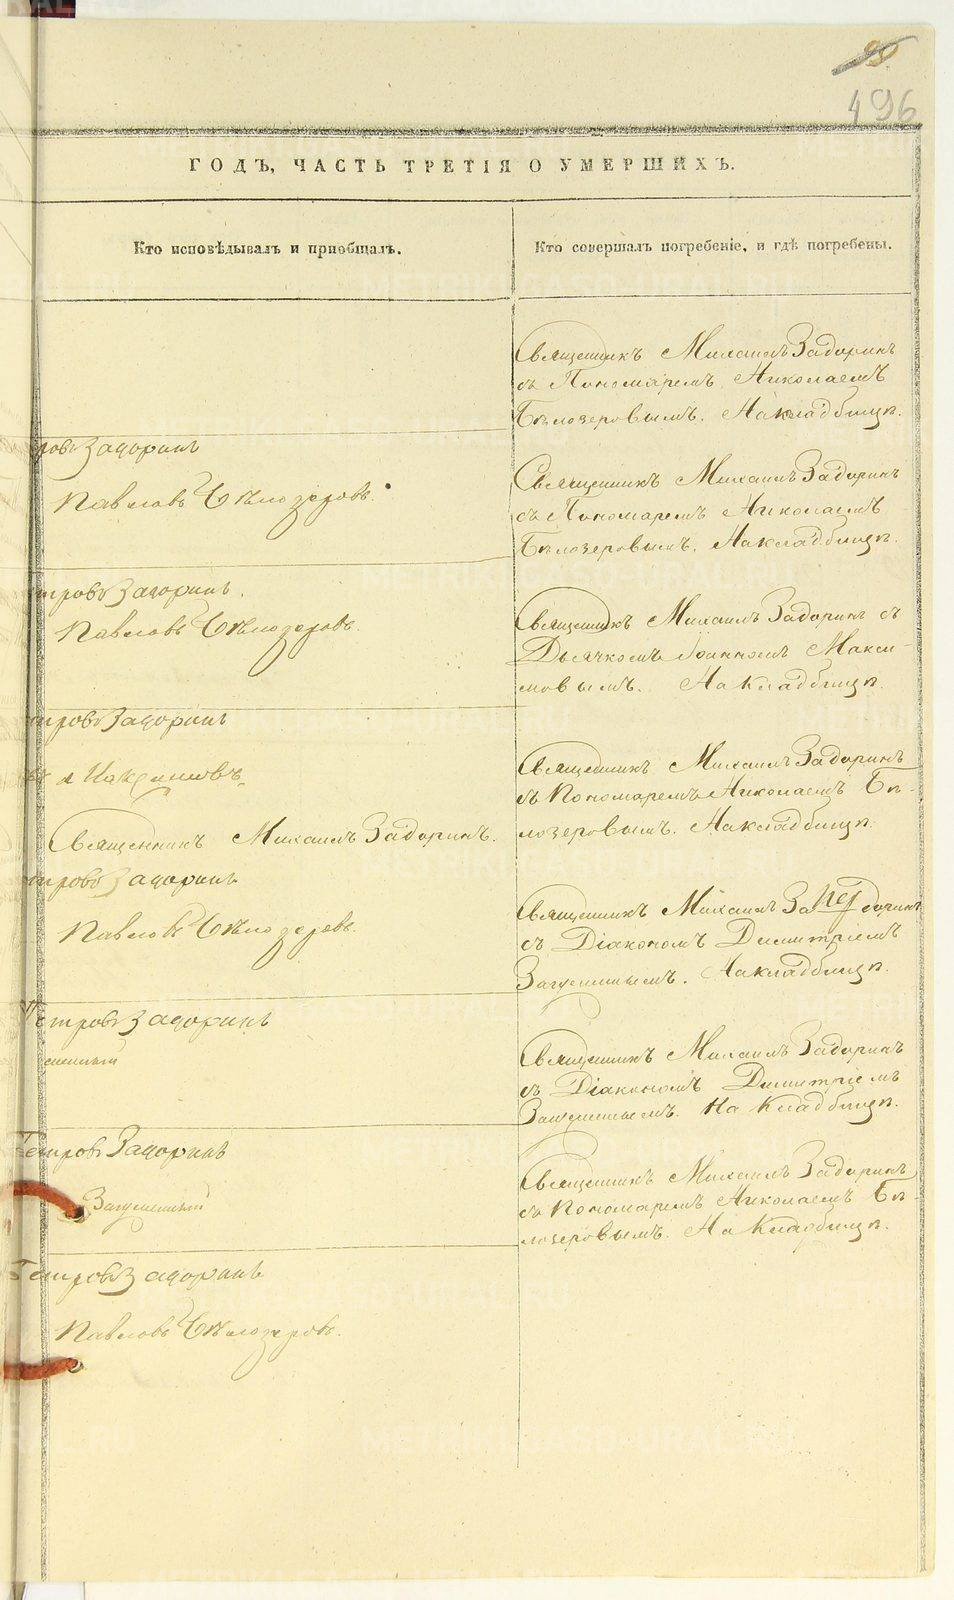 496
ГОДЪ, ЧАСТЬ ТРЕТІЯ О УМЕРШИХЪ.
Кто исповѣдывалъ и пріобщалъ.
Кто совершалъ погребеніе, и гдѣ погребены.
Священникъ Михаилъ Задоринъ
съ Пономаремъ Николаемъ
Бѣлозеровымъ. На кладбищѣ.
ровъ Задоринъ
Павловъ Бѣлозеровъ.
Священникъ Михаилъ Задоринъ
съ Пономаремъ Николаемъ
Бѣлозеровымъ. На кладбищѣ.
тровъ Задоринъ.
Павловъ Бѣлозеровъ.
Священникъ Михаилъ Задоринъ съ
Дьячкомъ Іоанномъ Макси-
мовымъ. На кладбищѣ.
тровъ Задоринъ
Максимовъ.
Священникъ Михаилъ Задоринъ.
Священникъ Михаилъ Задоринъ
съ Пономаремъ Николаемъ Бѣ-
лозеровымъ. На кладбищѣ.
тровъ Задоринъ
Павловъ Бѣлозеровъ.
Священникъ Михаилъ Задоринъ
съ Діакономъ Димитріемъ
На кладбищѣ.
Петровъ Задоринъ
Священникъ Михаилъ Задоринъ
съ Діакономъ Димитріемъ
На кладбищѣ.
Петровъ Задоринъ
Священникъ Михаилъ Задоринъ
съ Пономаремъ Николаемъ Бѣ-
лозеровымъ. На кладбищѣ.
Петровъ Задоринъ
Павловъ Бѣлозеровъ.
METRIKI.GASO-URAL.RU